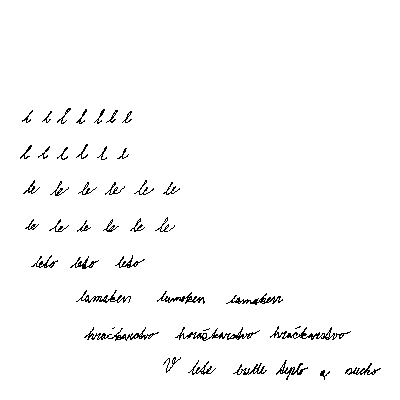 l l l l l l l
l l l l l l
le le le le le le
le le le le le le
leto leto leto
lamaken lamaken lamaken
hračkarstvo hračkarstvo hračkarstvo
V lete bude teplo a sucho